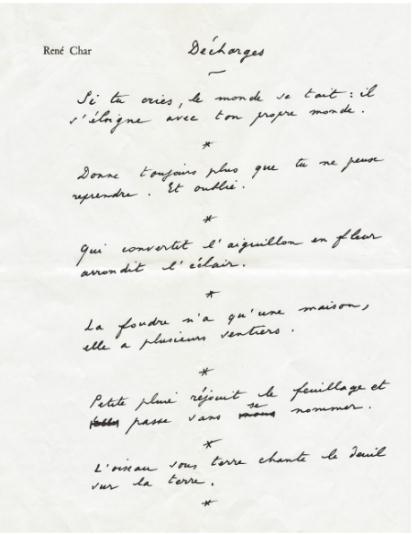 René Char
Décharges
Si tu cries, le monde se tait : il
s'éloigne avec ton propre monde.
*
Donne toujours plus que tu ne peux
reprendre. Et oublie.
*
Qui convertit l'aiguillon en fleur
arrondit l'éclair.
*
La foudre n'a qu'une maison,
elle a plusieurs sentiers.
*
Petite pluie réjouit le feuillage et
passe sans se nommer.
*
L'oiseau sous terre chante le deuil
sur la terre.
*